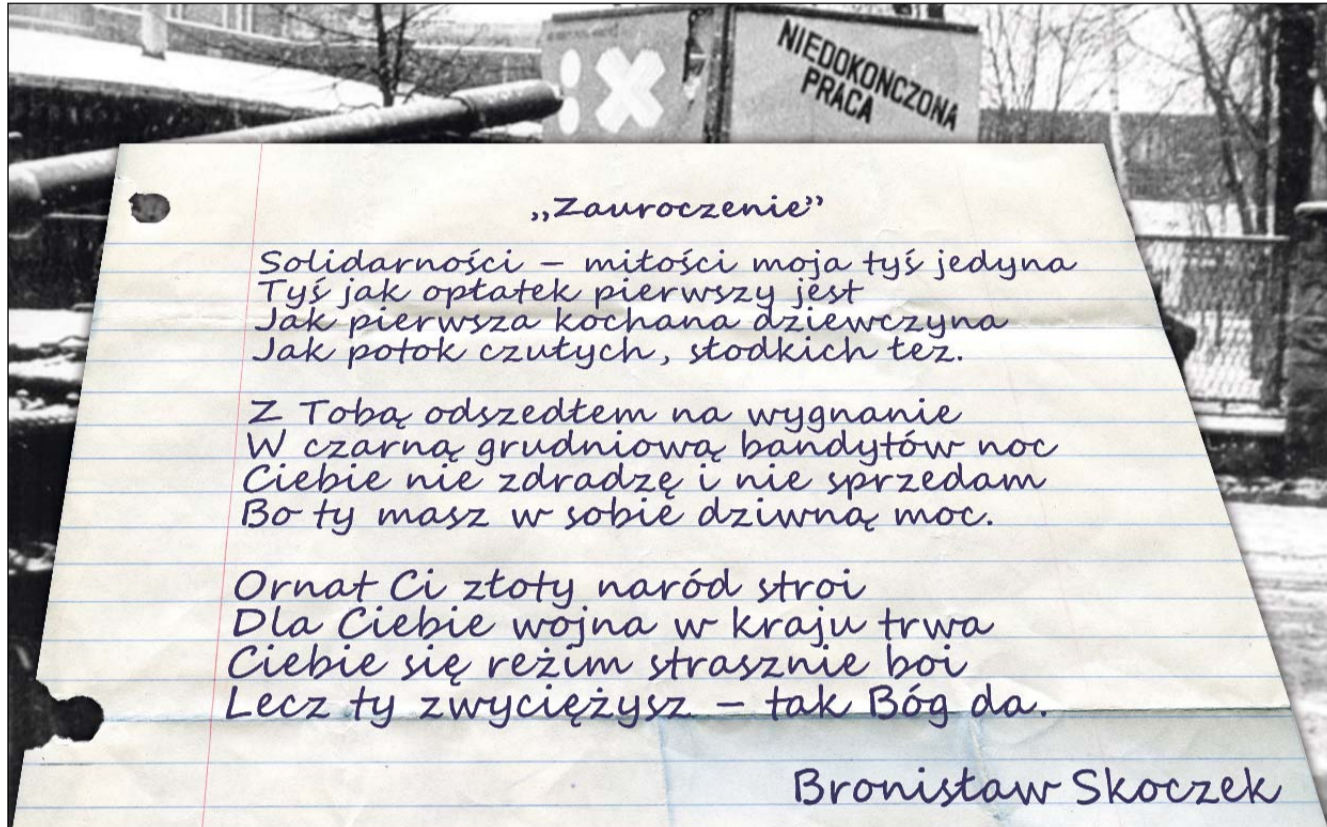 NIEDOKOŃCZONA
PRACA
„Zauroczenie”
Solidarności – miłości moja tyś jedyna
Tyś jak opłatek pierwszy jest
Jak pierwsza kochana dziewczyna
Jak potok czułych, słodkich łez.
Z Tobą odszedłem na wygnanie
W czarną grudniową bandytów noc
Ciebie nie zdradzę i nie sprzedam
Bo ty masz w sobie dziwną moc.
Ornat Ci złoty naród stroi
Dla Ciebie wojna w kraju trwa
Ciebie się reżim strasznie boi
Lecz ty zwyciężysz – tak Bóg da.
Bronisław Skoczek